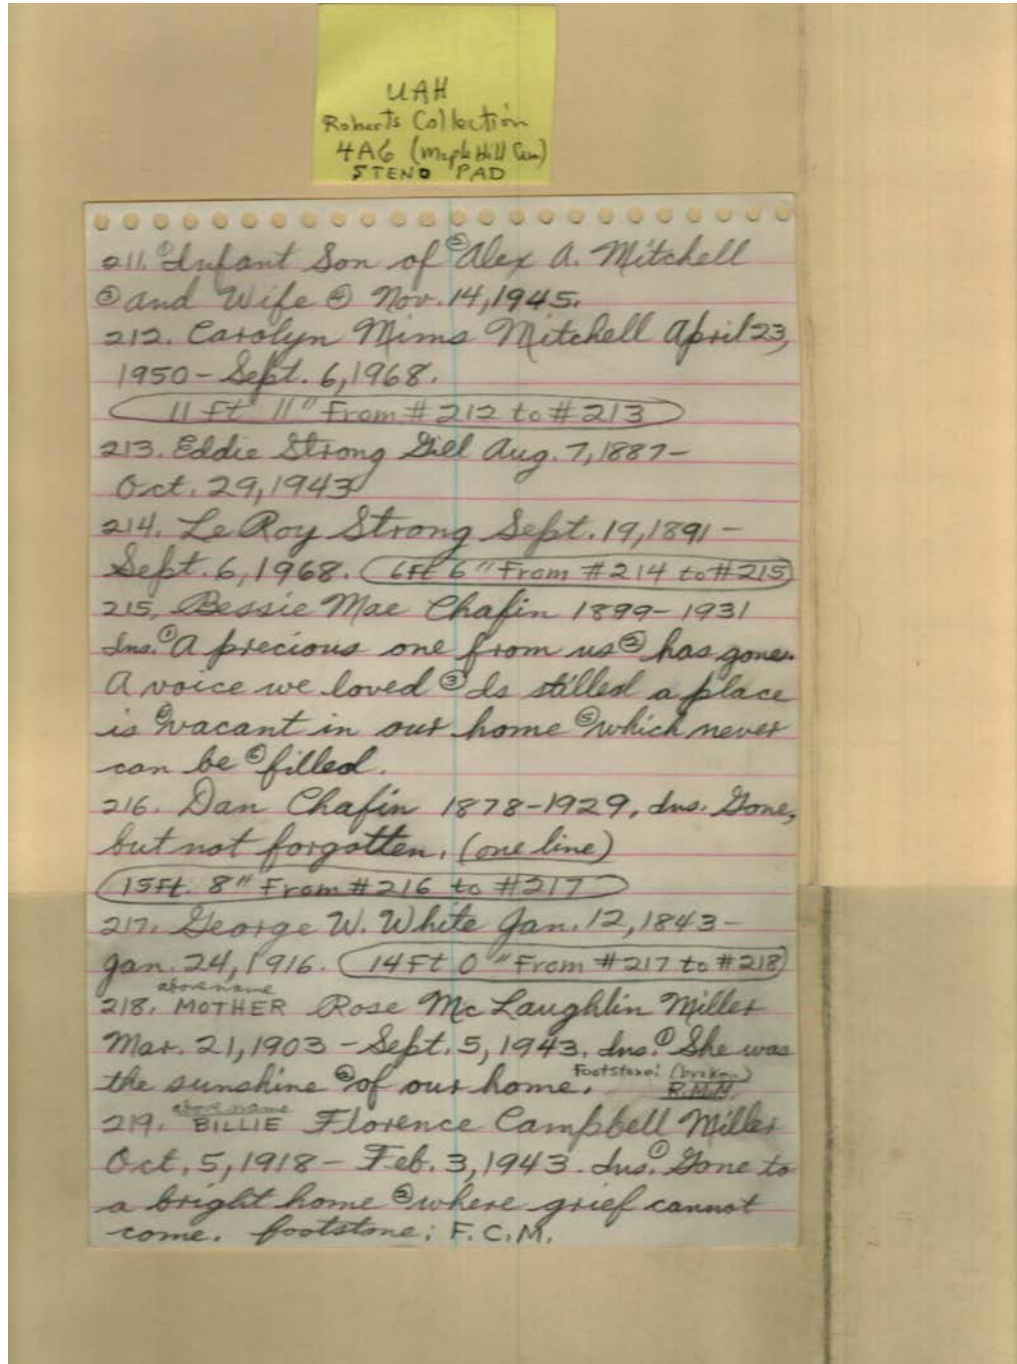 UAH
Roberts Collection
4A6 (Maple Hill Cem)
STENO PAD
211. ①Infant Son of ②Alex A. Mitchell
③and Wife ④ Nov. 14, 1945.
212. Carolyn Mims Mitchell April 23,
1950 - Sept. 6, 1968.
11 Ft 11" From # 212 to # 213
213. Eddie Strong Gill Aug. 7, 1887 -
Oct. 29, 1943
214. Le Roy Strong Sept. 19, 1891 -
Sept. 6, 1968. 6Ft 6" From # 214 to # 215
215. Bessie Mae Chafin 1899 - 1931
Ins. ①A precious one from us ② has gone.
A voice we loved ③ Is stilled a place
is ④vacant in our home ⑤which never
can be ⑥filled.
216. Dan Chafin 1878-1929. Ins. Gone,
but not forgotten. (one line)
15Ft. 8" From # 216 to # 217
217. George W. White Jan. 12, 1843 -
Jan. 24, 1916. 14Ft 0" From # 217 to # 218
above name
218. MOTHER Rose Mc Laughlin Miller
Mar. 21, 1903 - Sept. 5, 1943. Ins. ①She was
the sunshine ②of our home. Footstone: (broken) R.M.M.
above name
219. BILLIE Florence Campbell Miller
Oct. 5, 1918 - Feb. 3, 1943. Ins. ①Gone to
a bright home ②where grief cannot
come. footstone: F.C.M.